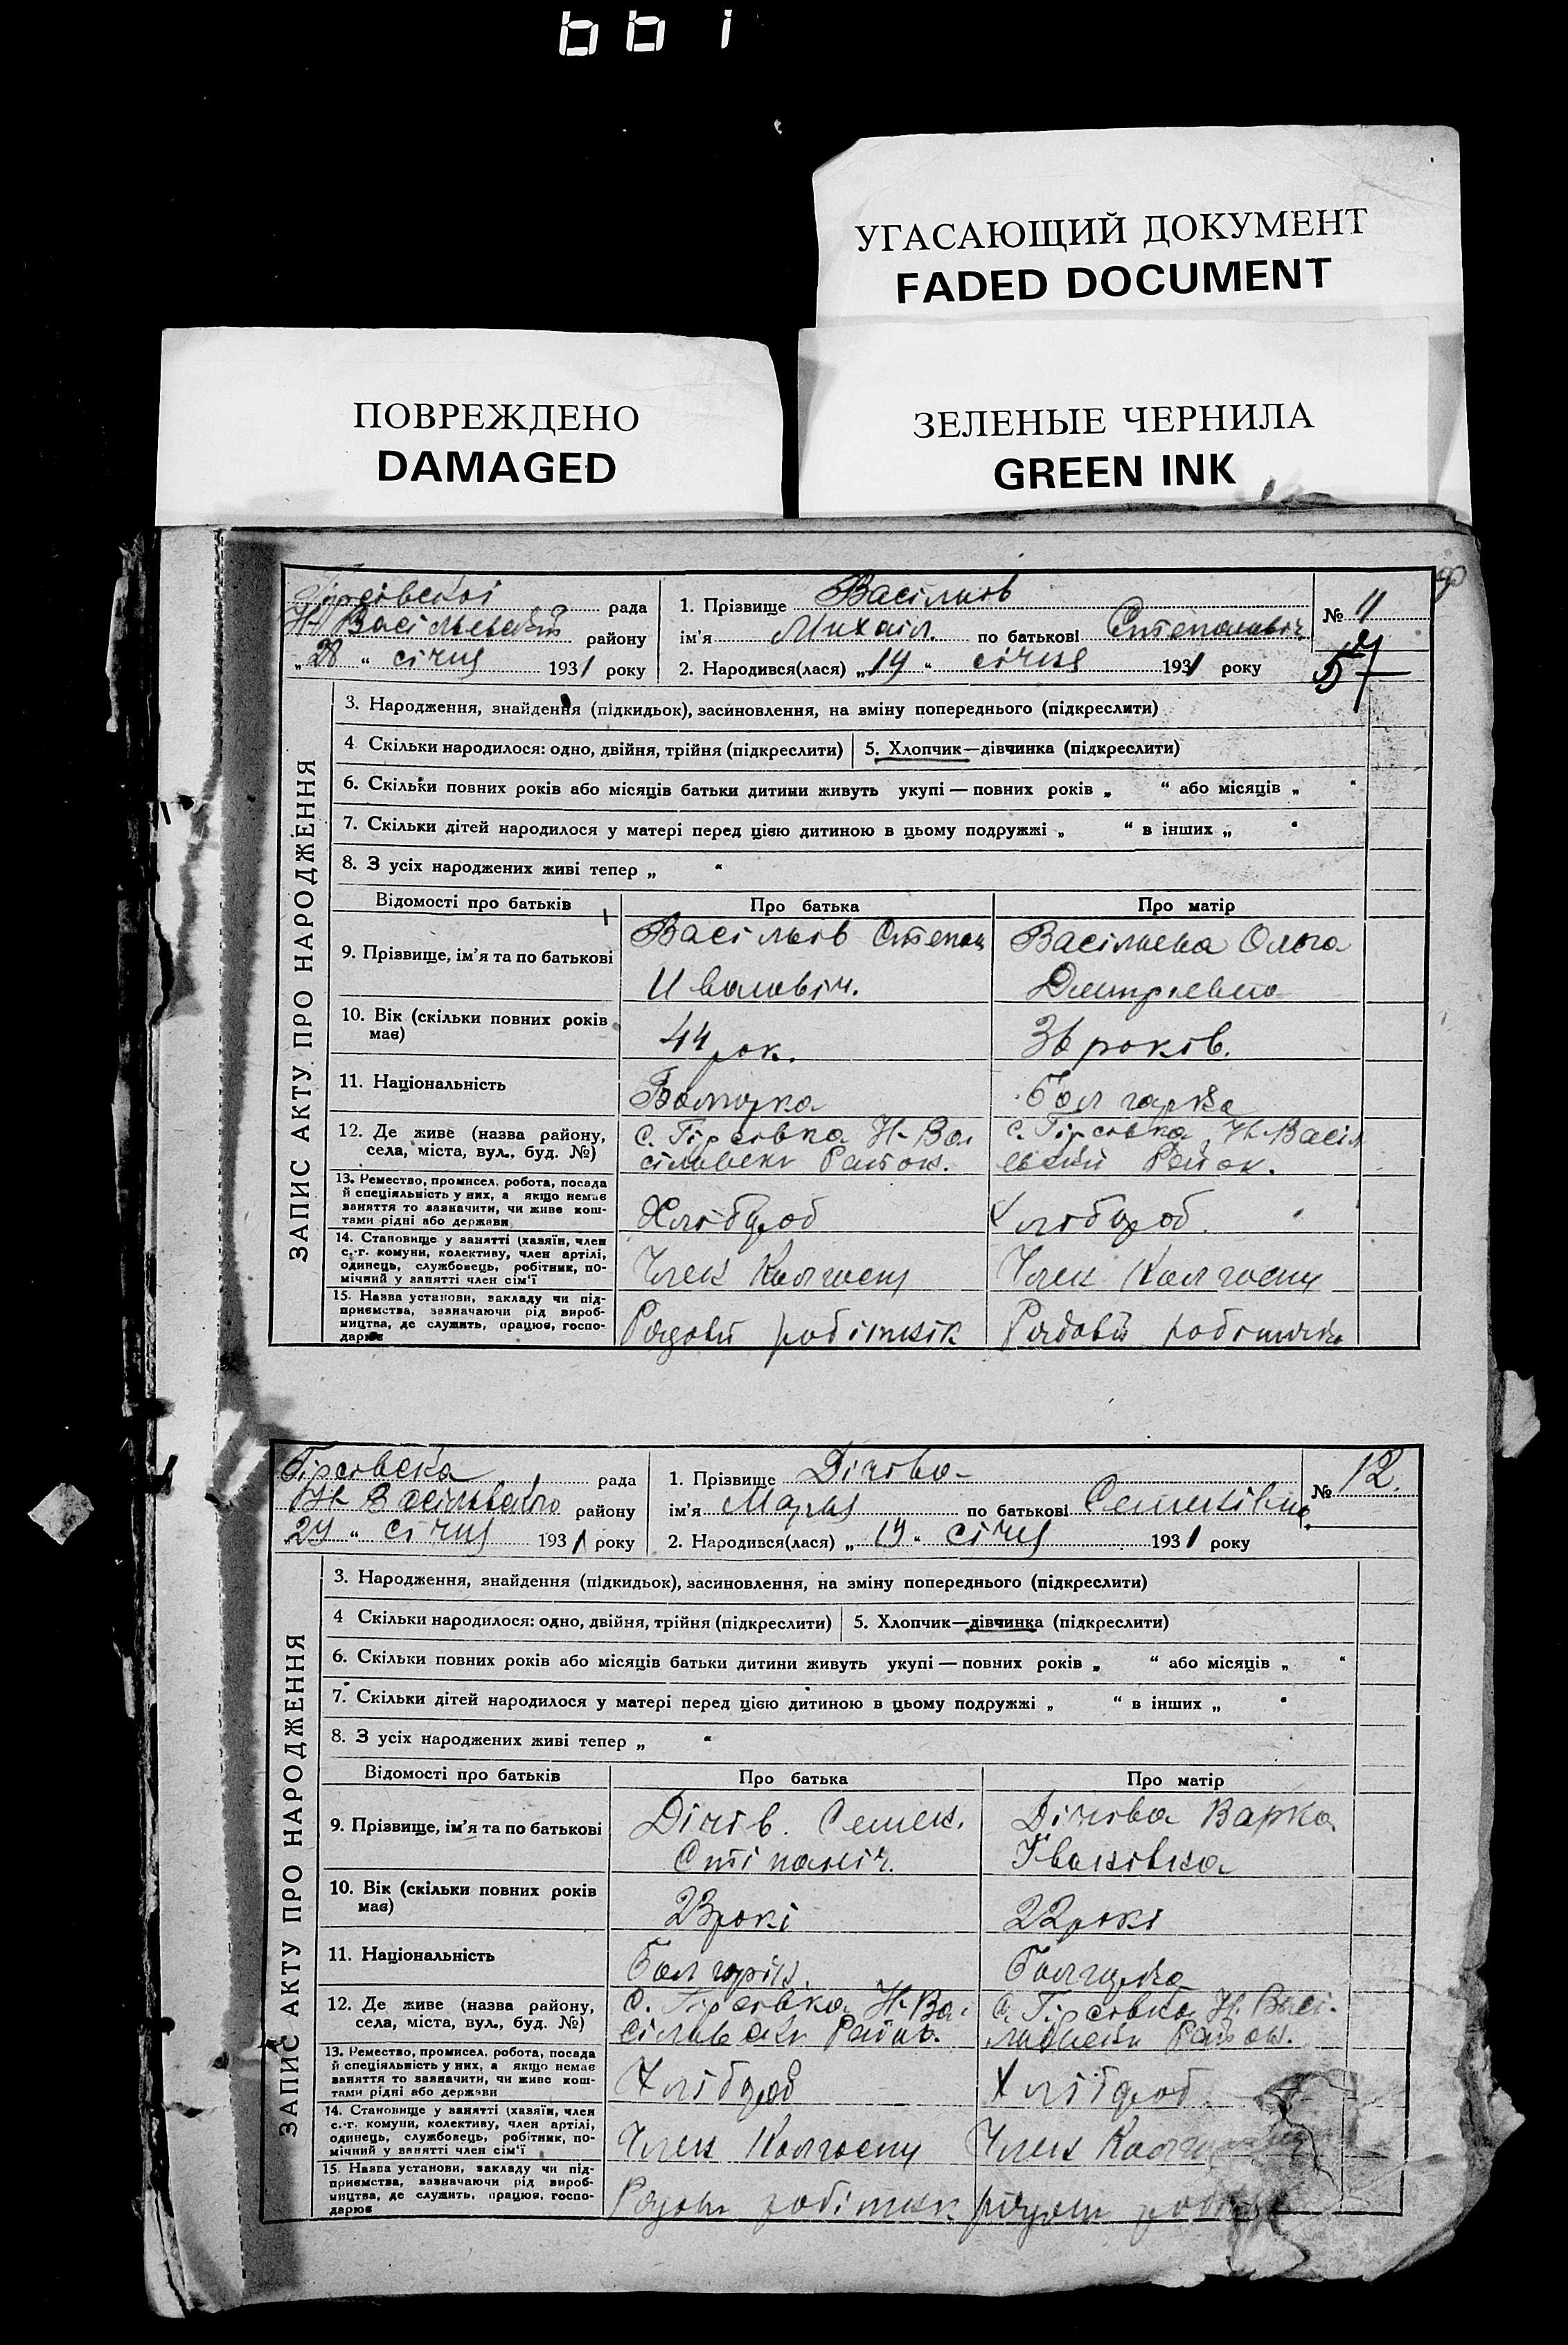 УГАСАЮЩИЙ ДОКУМЕНТ
FADED DOCUMENT
ПОВРЕЖДЕНО
DAMAGED
ЗЕЛЕНЫЕ ЧЕРНИЛА
GREEN INK
рада
Н Васільевский району
„28 “ січня 1931 року
1. Прізвище Васільов
ім'я Михаіл. по батькові Степанович
2. Народився(лася) „19 “ січня 1931 року
№ 11
57
ЗАПИС АКТУ ПРО НАРОДЖЕННЯ
3. Народження, знайдення (підкидьок), засиновлення, на зміну попереднього (підкреслити)
4 Скільки народилося: одно, двійня, трійня (підкреслити) 5. Хлопчик—дівчинка (підкреслити)
6. Скільки повних років або місяців батьки дитини живуть укупі — повних років „ “ або місяців „ “
7. Скільки дітей народилося у матері перед цією дитиною в цьому подружжі „ “ в інших „ “
8. З усіх народжених живі тепер „ “
Відомості про батьків Про батька Про матір
9. Прізвище, ім'я та по батькові
Васільов Степан
Ивановіч.
Васільева Ольга
Дмитріевна
10. Вік (скільки повних років
має)
44 рок.
36 років.
11. Національність
Болгарка
Болгарка
12. Де живе (назва району,
села, міста, вул., буд. №)
с. Гірсовка Н-Ва
сільевск Район.
с. Гірсовка, Н-Васіл
евский Район.
13. Ремество, промисел, робота, посада
й спеціяльність у них, а якщо немає
заняття то зазначити, чи живе кош-
тами рідні або держави
Хлібороб
Хлібороб.
14. Становище у занятті (хазяїн, член
с.-г. комуни, колективу, член артілі,
одинець, службовець, робітник, по-
мічний у занятті член сім'ї
Член Колгоспу
Член Колгоспу
15. Назва установи, закладу чи під-
приємства, зазначаючи рід вироб-
ництва, де служить, працює, госпо-
дарює
Рядовий робітнік
Рядовий робітнік
Гірсовска рада
Н Васільевского району
29 “ січня 1931 року
1. Прізвище Дічева
ім'я Марія по батькові Семенівна
2. Народився(лася) „19 “ січня 1931 року
№ 12.
ЗАПИС АКТУ ПРО НАРОДЖЕННЯ
3. Народження, знайдення (підкидьок), засиновлення, на зміну попереднього (підкреслити)
4 Скільки народилося: одно, двійня, трійня (підкреслити) 5. Хлопчик—дівчинка (підкреслити)
6. Скільки повних років або місяців батьки дитини живуть укупі — повних років „ “ або місяців „ “
7. Скільки дітей народилося у матері перед цією дитиною в цьому подружжі „ “ в інших „ “
8. З усіх народжених живі тепер „ “
Відомості про батьків Про батька Про матір
9. Прізвище, ім'я та по батькові
Дічів. Семен.
Степаніч.
Дічова Варка
Іванівна
10. Вік (скільки повних років
має)
23 рокі
22 рокі
11. Національність
Болгарін.
Болгарка
12. Де живе (назва району,
села, міста, вул., буд. №)
с. Гірсовка Н-Ва-
сільевски Район.
с. Гірсовка Н. Васі-
льевски Район.
13. Ремество, промисел, робота, посада
й спеціяльність у них, а якщо немає
заняття то зазначити, чи живе кош-
тами рідні або держави
Хлібороб
Хлібороб
14. Становище у занятті (хазяїн, член
с.-г. комуни, колективу, член артілі,
одинець, службовець, робітник, по-
мічний у занятті член сім'ї
Член Колгоспу
Член
15. Назва установи, закладу чи під-
приємства, зазначаючи рід вироб-
ництва, де служить, працює, госпо-
дарює
Рядови робітник
рядови